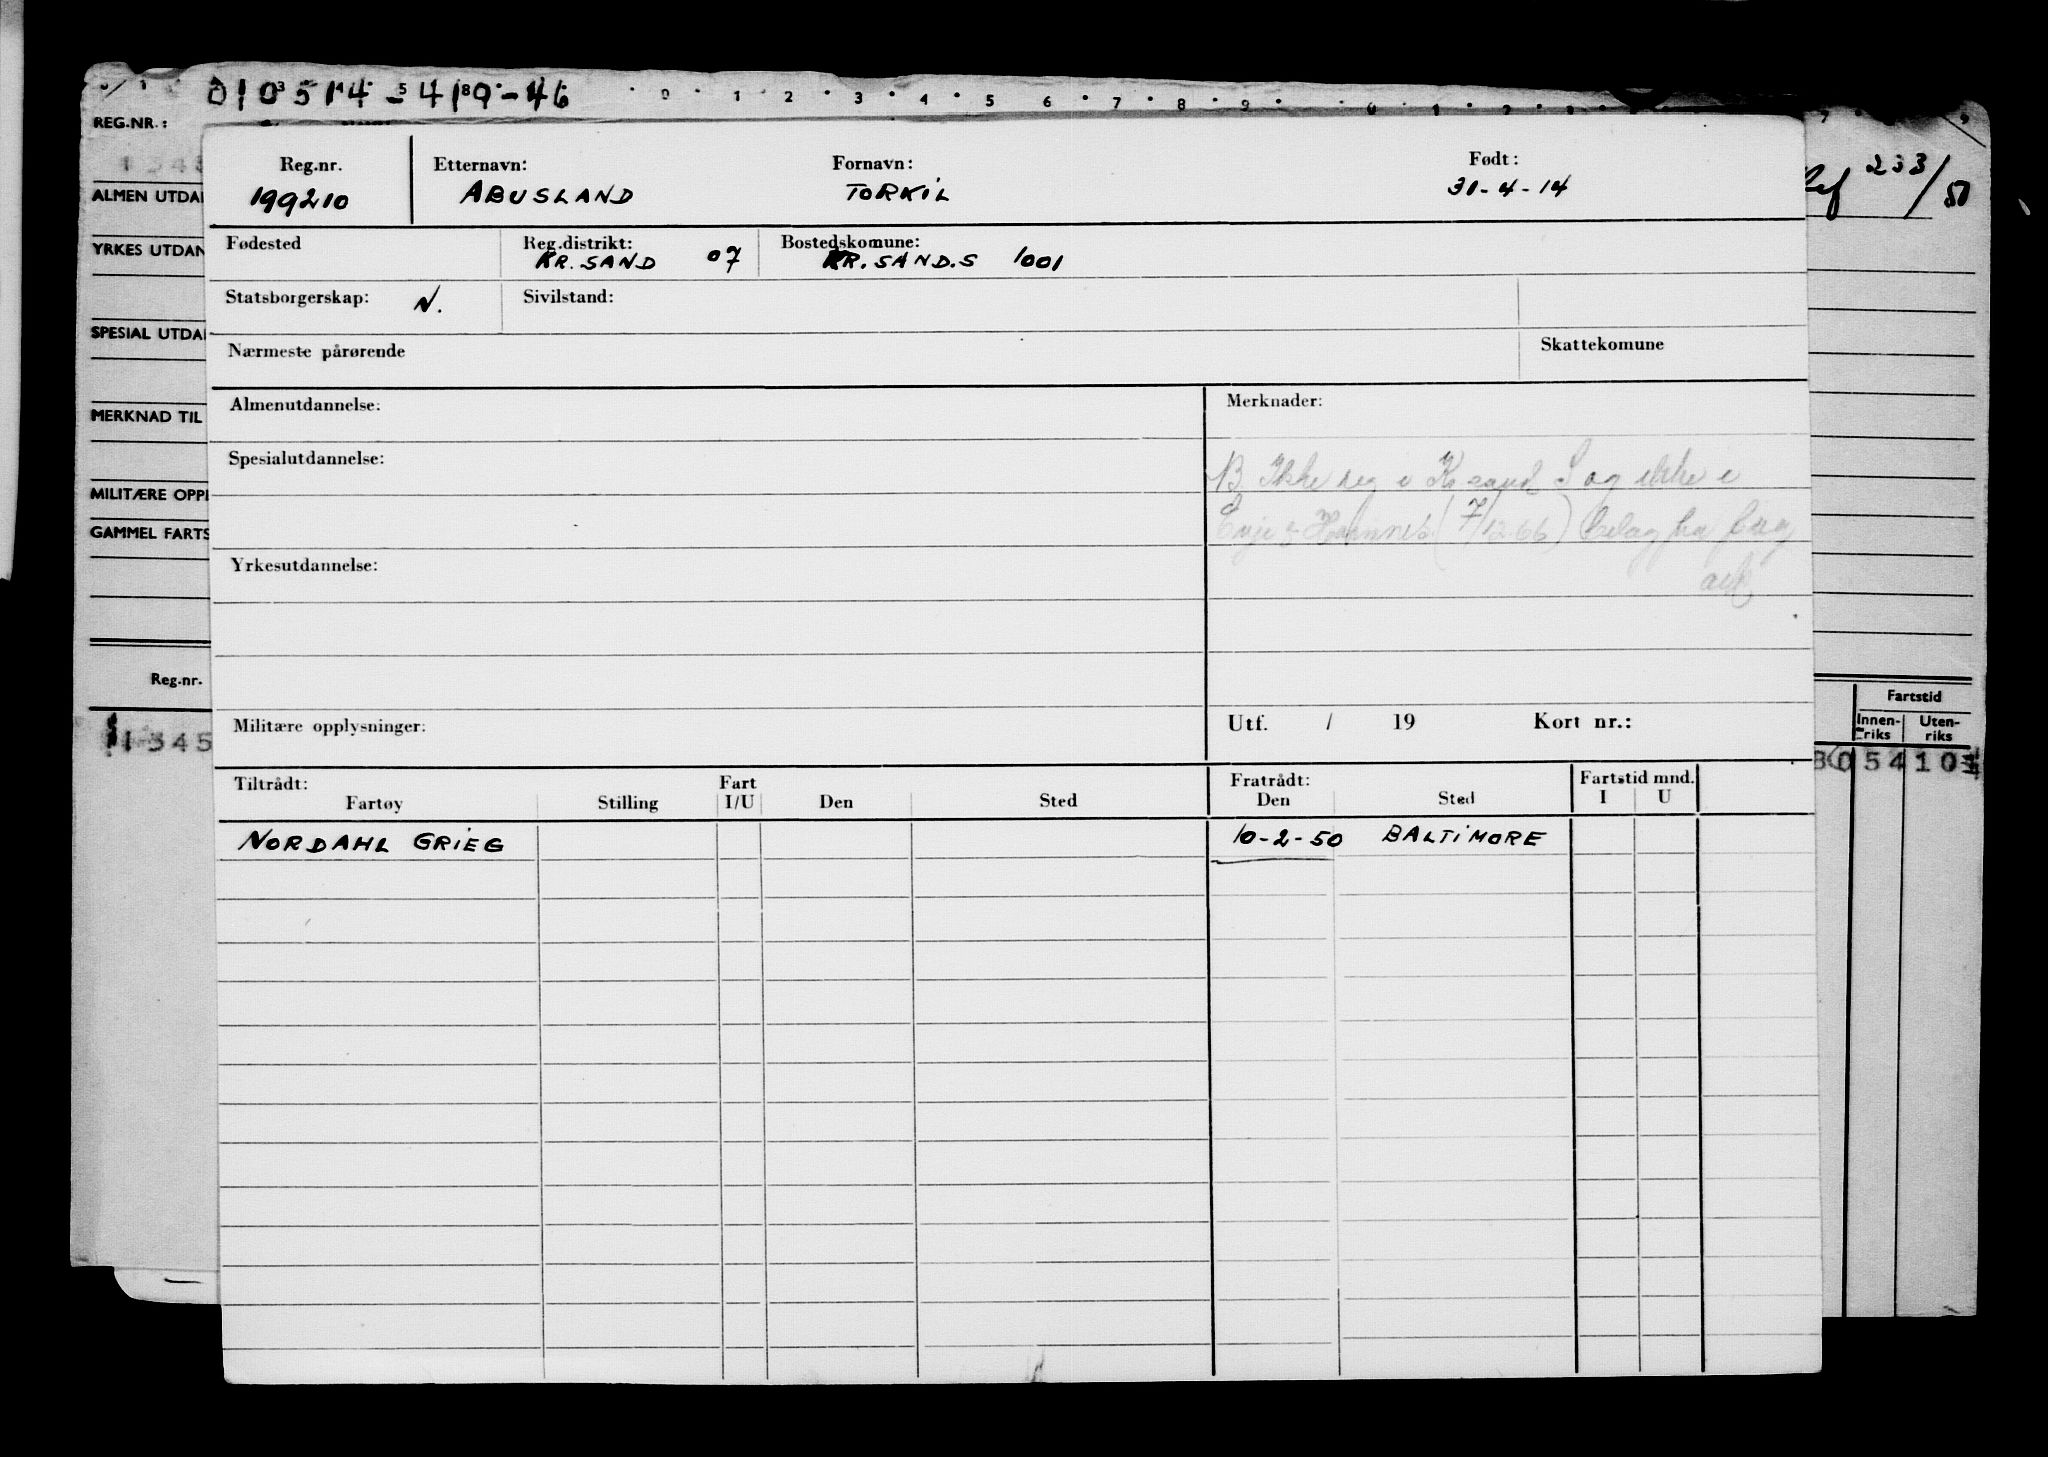 010514-54189-46
0 1 2 3 4 5 6 7 8 9
REG.NR.:
233/50
ALMEN UTDA
YRKES UTDAN
SPESIAL UTDA
MERKNAD TIL
MILITÆRE OPPL
GAMMEL FARTS
Reg.nr.
1345
Fartstid
Innen-riks Uten-riks
Reg.nr. Etternavn: Fornavn: Født:
199210 ABUSLAND TORKIL 31-4-14
Fødested Reg.distrikt: Bostedskomune:
KR.SAND 07 KR.SAND.S 1001
Statsborgerskap: N. Sivilstand:
Nærmeste pårørende Skattekomune
Almenutdannelse: Merknader:
Spesialutdannelse:
Ikke reg i Kr.sand S og ikke i
(7/12 66) fra
Yrkesutdannelse:
Militære opplysninger: Utf. / 19 Kort nr.:
Tiltrådt: Fart Fratrådt: Fartstid mnd.
Fartøy Stilling I/U Den Sted Den Sted I U
NORDAHL GRIEG 10-2-50 BALTIMORE